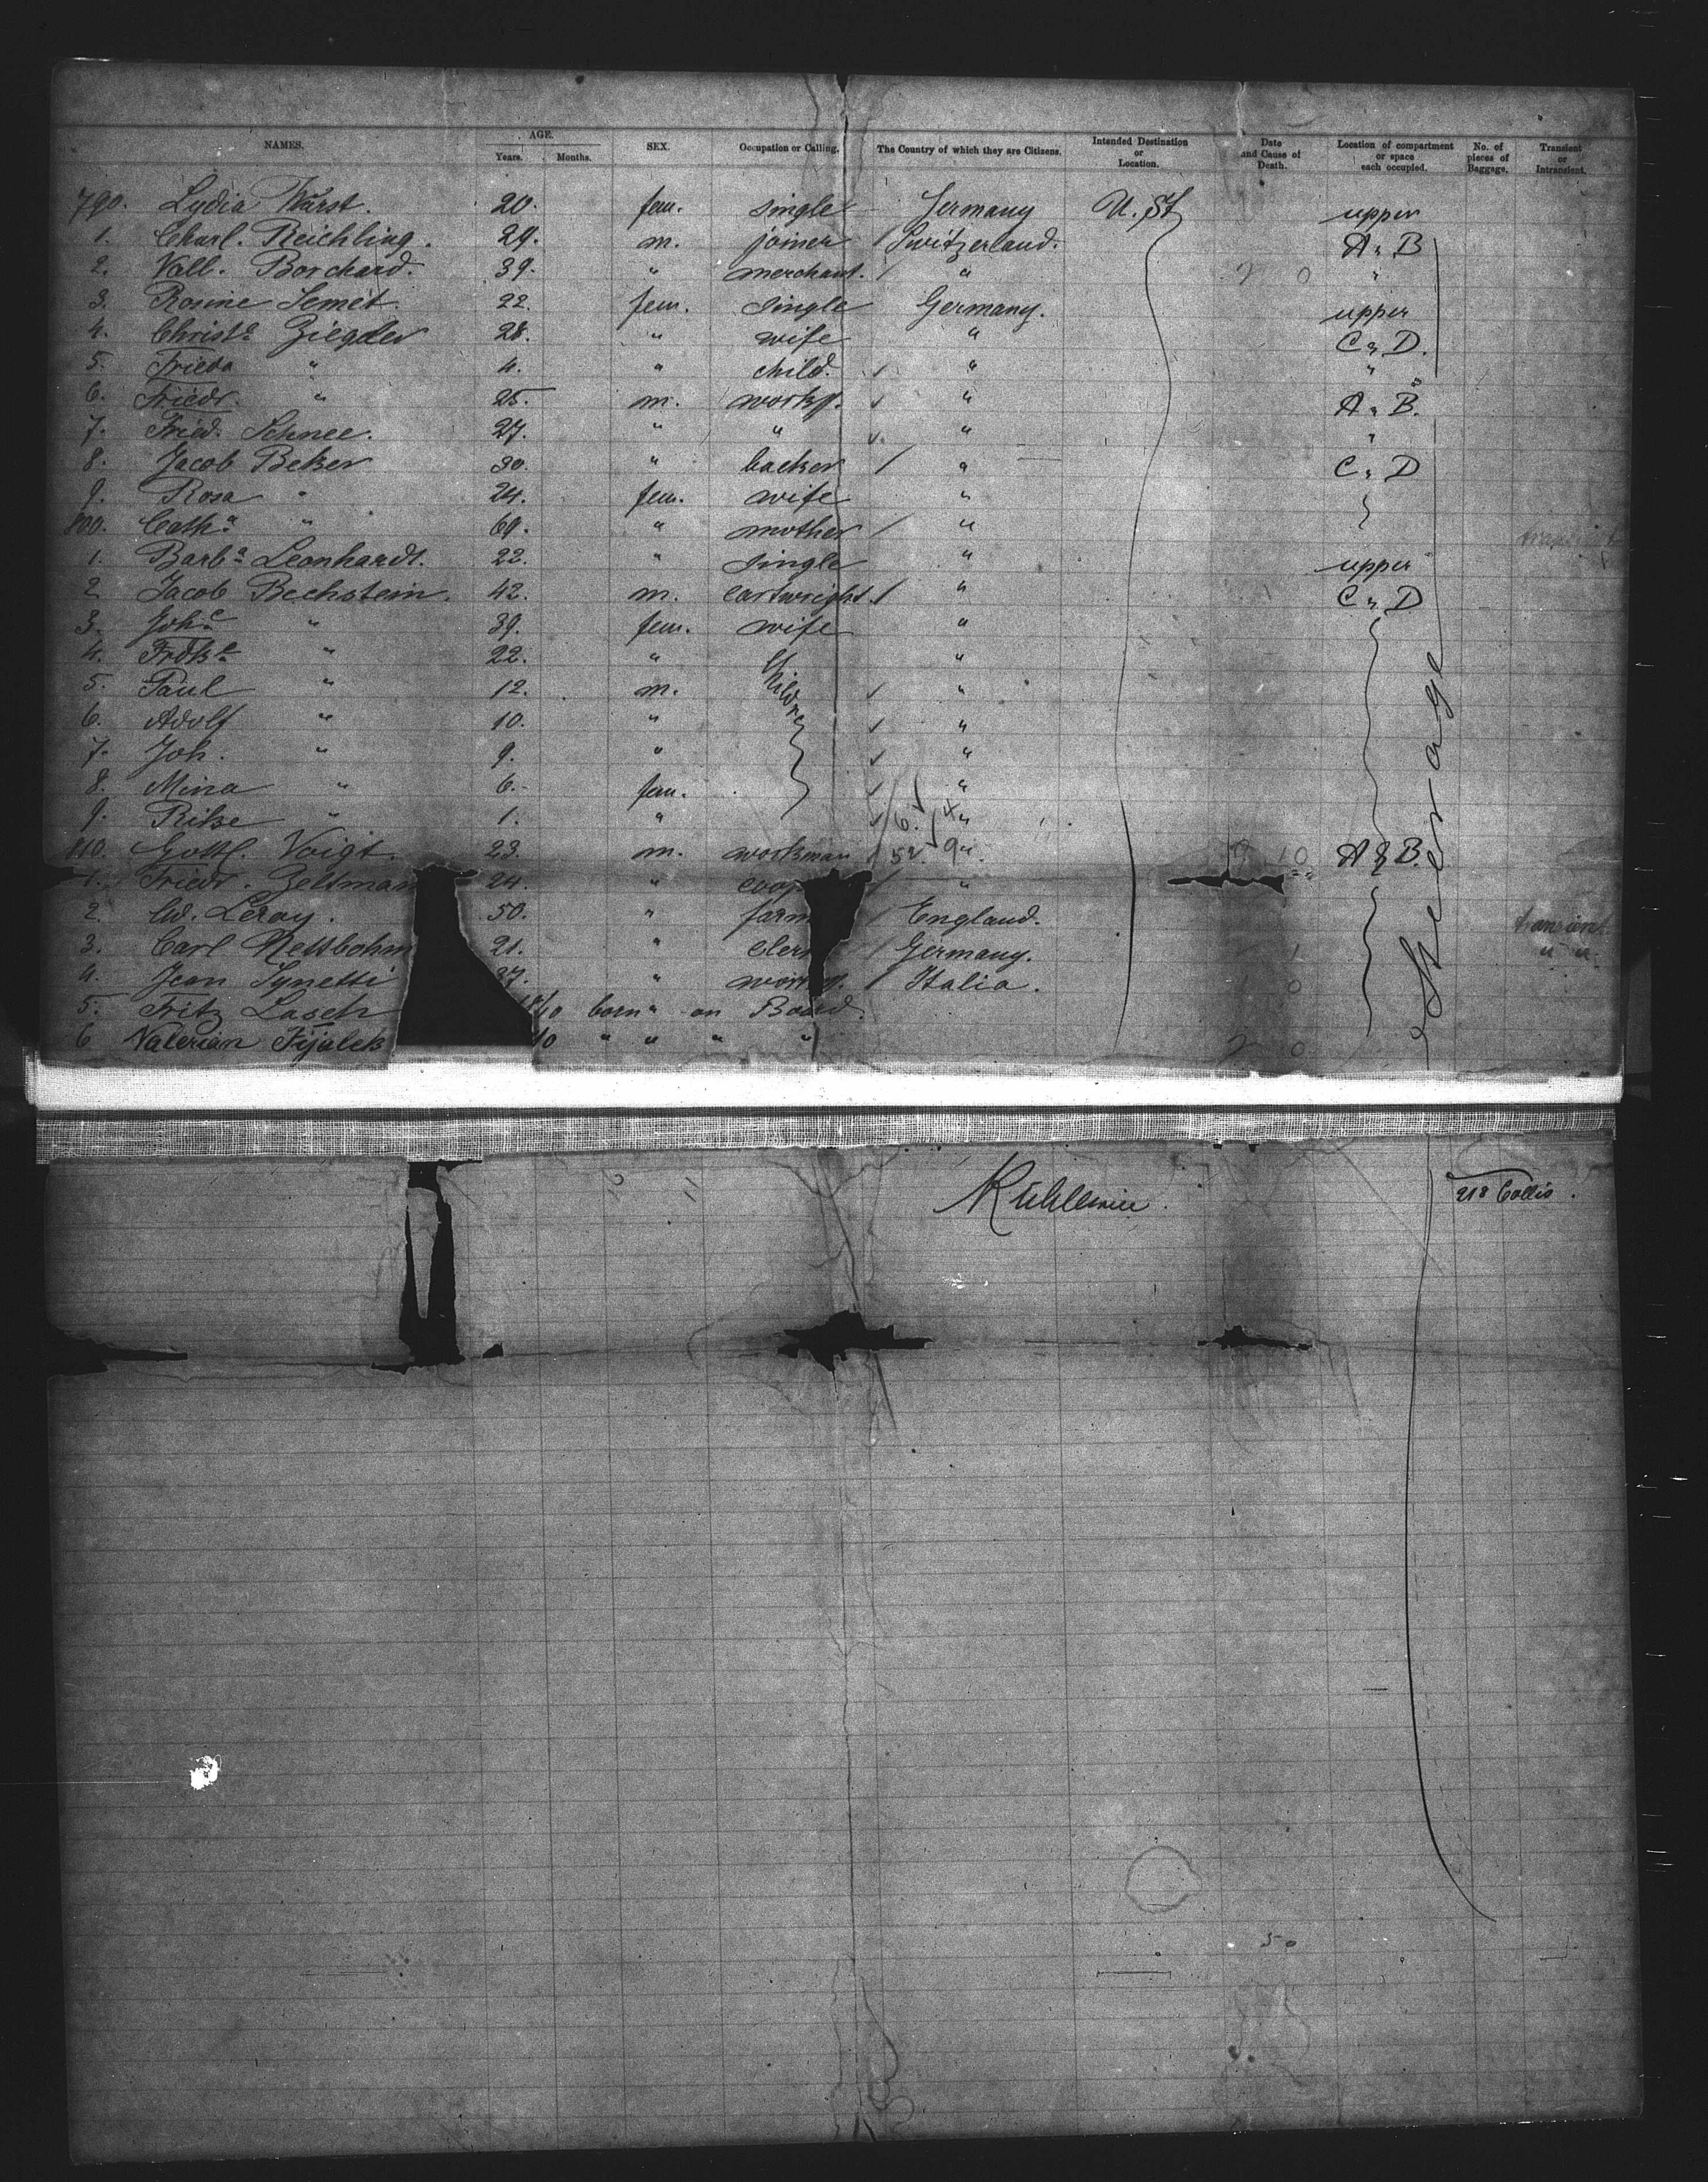 NAMES. AGE. Years. Months. SEX. Occupation or Calling. The Country of which they are Citizens. Intended Destination or Location. Date and Cause of Death. Location of compartment or space each occupied. No. of pieces of Baggage. Transient or Intransient.
790. Lydia Wurst. 20. fem. single Germany U. St. upper
1. Charl. Reichling. 29. m. joiner / Switzerland. A & B
2. Vall. Borchard. 39. " merchant. / " "
3. Rosine Semet. 22. fem. single Germany. upper
4. Christ.a Ziegler 28. " wife " C & D.
5. Frieda " 4. " child. ✓ " " "
6. Friedr. " 25. m. workg. ✓ " A & B.
7. Fried. Schnee. 27. " " ✓ " "
8. Jacob Beker 30. " backer / " C & D
9. Rosa " 24. fem. wife "
800. Cath.a " 69. " mother / "
1. Barb.a Leonhardt. 22. " single " upper
2. Jacob Bechstein. 42. m. cartwright. / " C & D
3. Joh.e " 39. fem. wife "
4. " 22. " children "
5. Paul " 12. m. ✓ "
6. Adolf " 10. " ✓ "
7. Joh. " 9. " ✓ "
8. Mina " 6. fem. ✓ "
9. Rike " 1. " ✓ "
810. Gottl. Voigt. 23. m. workman / " A & B.
1. Friedr. Zeltman 24. " coop / "
2. Ed. Leroy. 50. " farm / England. transient
3. Carl Nettbohm 21. " cler / Germany. " "
4. Jean Synetti 37. " / Italia.
5. Fritz Lasch /10 born " on Board.
6 Valerian Fijalek /10 " " " "
Steerage
218 Collis.